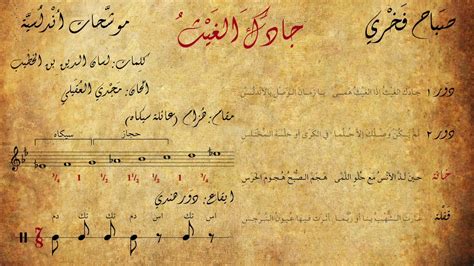 صباح فخري
جادك الغيثُ
موشحات أندلسية
كلمات: لسان الدين بن الخطيب
ألحان: مجدي العقيلي
مقام: هزام (عائلة سيكاه)
سيكاه
حجاز
¾ 1 ½ 1½ ½ 1 ¾
ايقاع: دور هندي
دم تك تك دم تك اس
7
8
دور ١ جادك الغيثُ إذا الغيثُ همى يا زمان الوصل بالأندلس
دور ٢ لم يكن وصلك إلا حلما في الكرى أو خلسة المختلس
خانة حين لذ الأنس مع حلو اللمى هجم الصبح هجوم الحرس
قفلة غارت الشهب بنا أو ربما أثرت فيها عيون النرجس